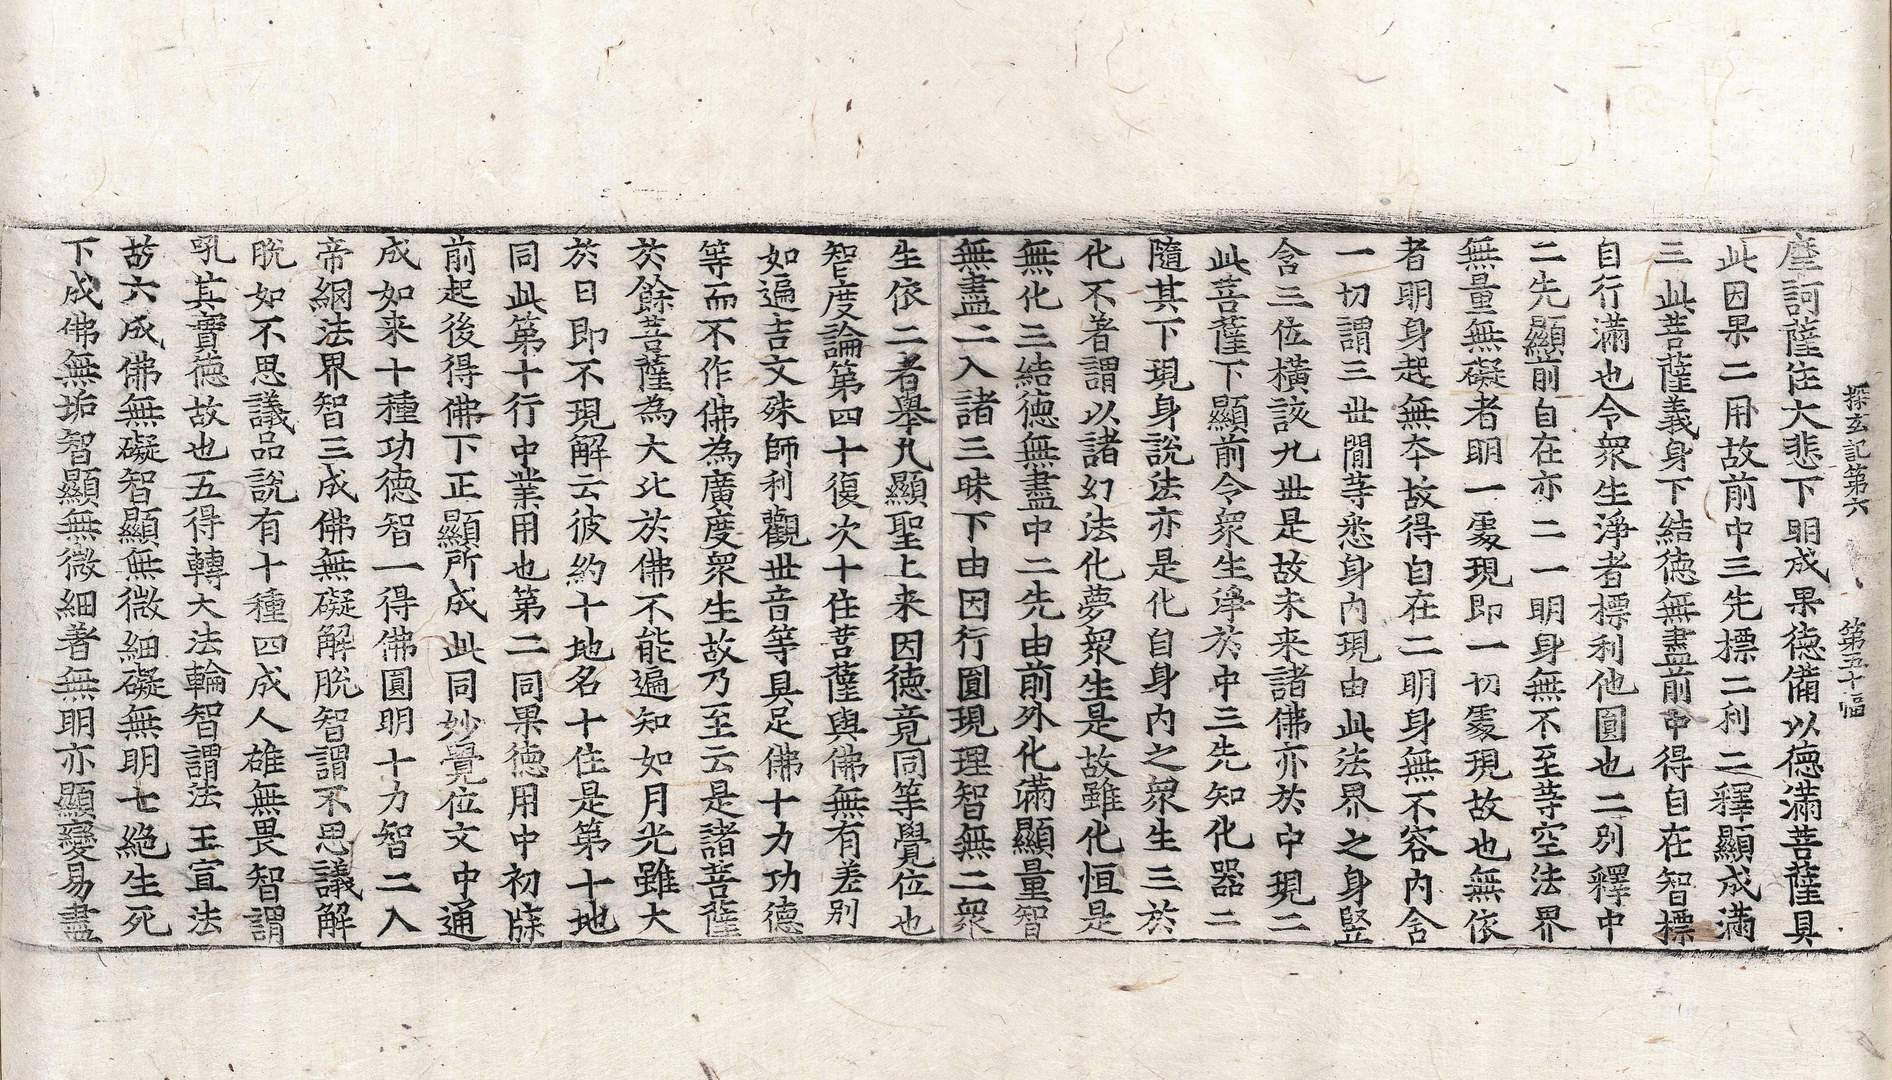 探玄記第六　第五十幅
摩訶薩住大悲下明成果德備以德滿菩薩具
此因果二用故前中三先標二利二釋顯成滿
三此菩薩義身下結德無盡前中得自在智標
自行滿也令衆生淨者標利他圓也二別釋中
二先顯前自在亦二一明身無不至等空法界
無量無礙者明一處現即一切處現故也無依
者明身起無本故得自在二明身無不容內含
一切謂三世間等悉身內現由此法界之身竪
含三位橫該九世是故未来諸佛亦於中現二
此菩薩下顯前令衆生淨於中三先知化器二
隨其下現身說法亦是化自身內之衆生三於
化不著謂以諸幻法化夢衆生是故雖化恒是
無化三結德無盡中二先由前外化滿顯量智
無盡二入諸三昧下由因行圓現理智無二衆
生依二者舉凡顯聖上来因德竟同等覺位也
智度論第四十復次十住菩薩與佛無有差別
如遍吉文殊師利觀世音等具足佛十力功德
等而不作佛為廣度衆生故乃至云是諸菩薩
於餘菩薩為大比於佛不能遍知如月光雖大
於日即不現解云彼約十地名十住是第十地
同此第十行中業用也第二同果德用中初牒
前起後得佛下正顯所成此同妙覺位文中通
成如来十種功德智一得佛圓明十力智二入
帝網法界智三成佛無礙解脫智謂不思議解
脫如不思議品說有十種四成人雄無畏智謂
吼其實德故也五得轉大法輪智謂法王宣法
故六成佛無礙智顯無微細礙無明七絕生死
下成佛無垢智顯無微細著無明亦顯變易盡